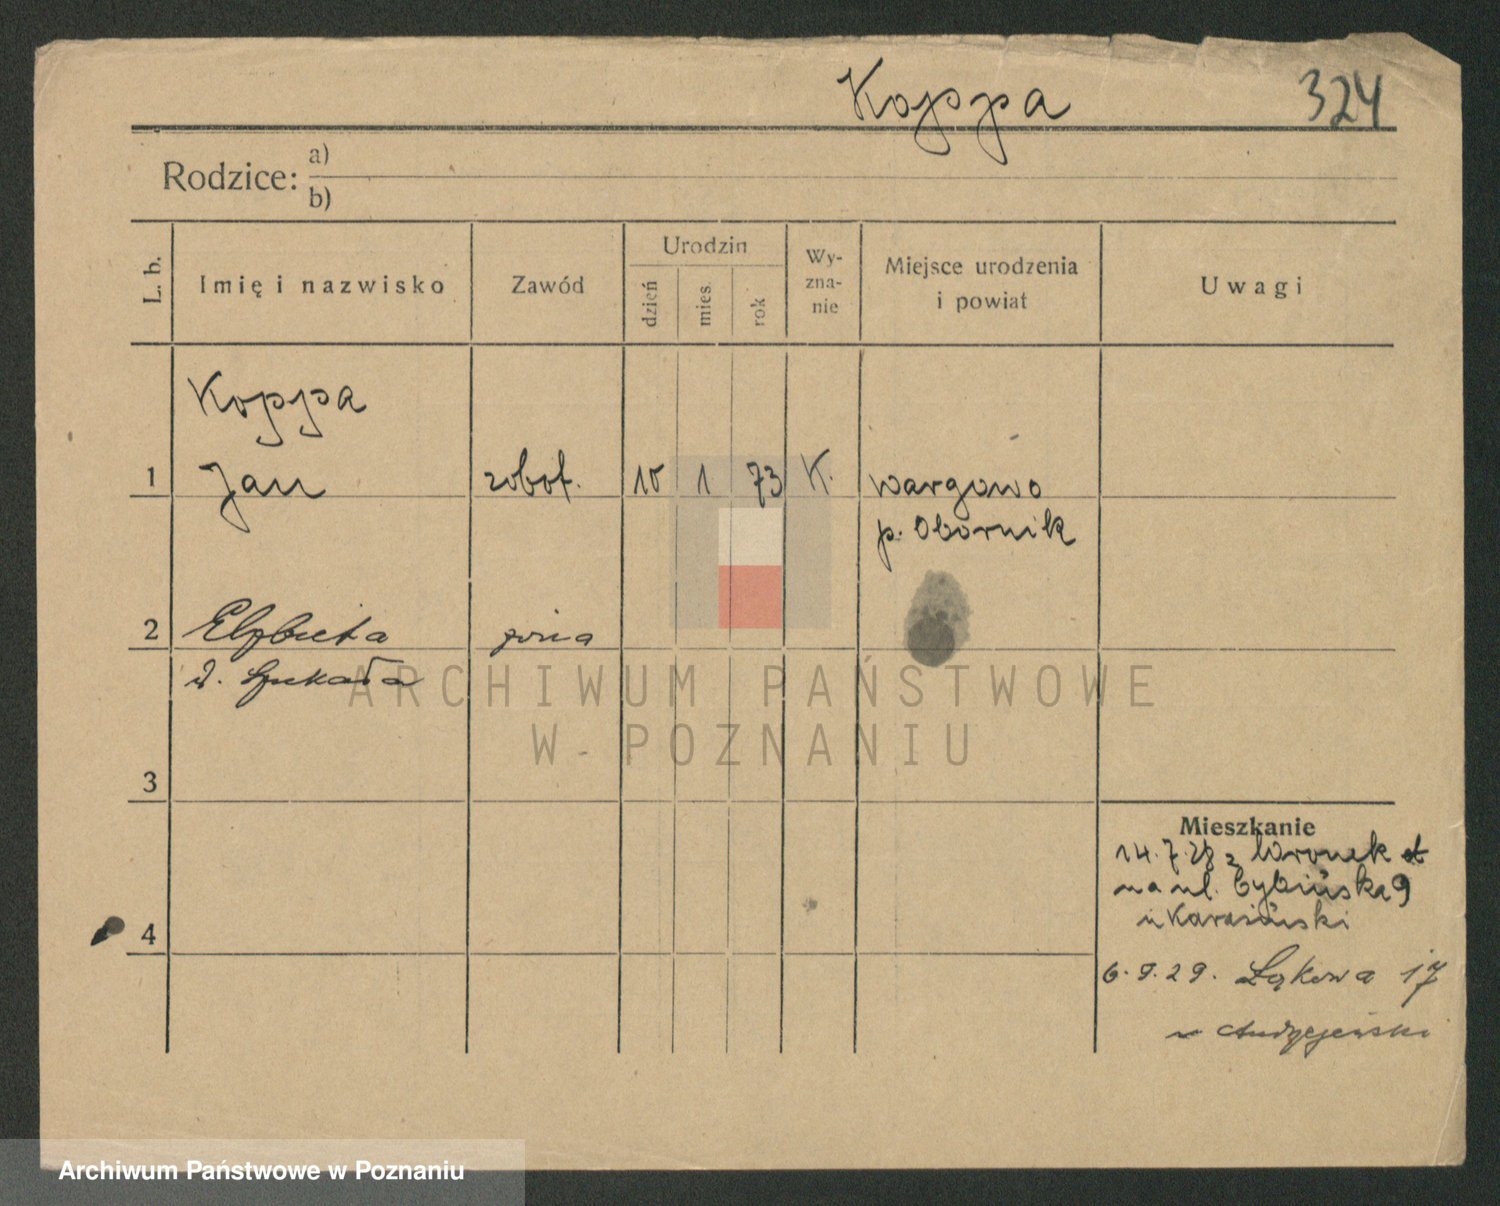 Koppa 324
Rodzice: a)
b)
L. b. Imię i nazwisko Zawód Urodzin dzień mies. rok Wy-zna-nie Miejsce urodzenia i powiat Uwagi
Koppa
1 Jan robot. 10 1 73 K. Wargowo
p. Obornik
2 Elżbieta żona
ARCHIWUM PAŃSTWOWE
W POZNANIU
3
Mieszkanie
14.7.28 z Wronek
na ul. Cybińska 9
4 u Karasiński
6.9.29. Łąkowa 17
u Andrzejewski
Archiwum Państwowe w Poznaniu